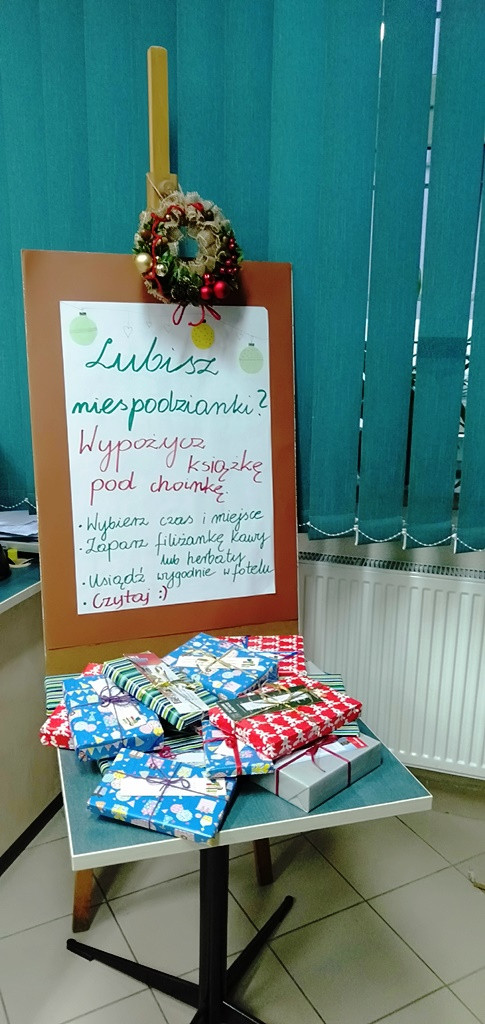 Lubisz
niespodzianki?
Wypożycz
książkę
pod choinkę.
• Wybierz czas i miejsce
• Zaparz filiżankę kawy
lub herbaty
• Usiądź wygodnie w fotelu
• Czytaj :)